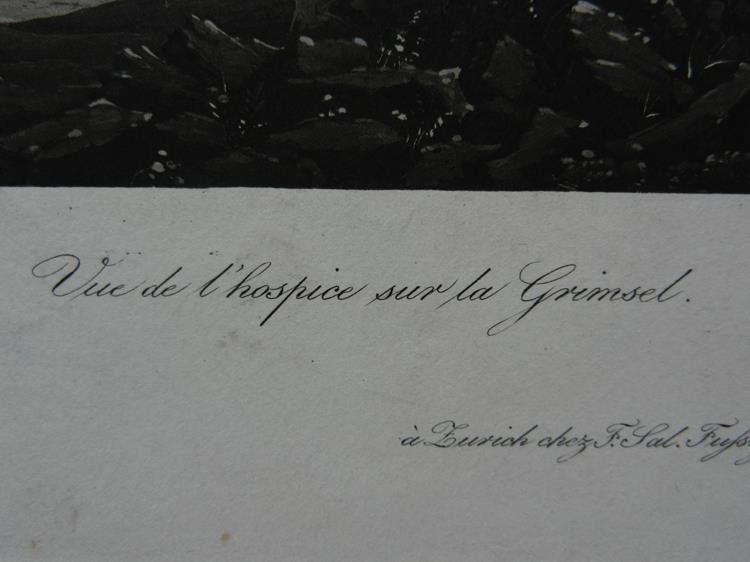 Vue de l'hospice sur la Grimsel.
à Zurich chez F. Sal.